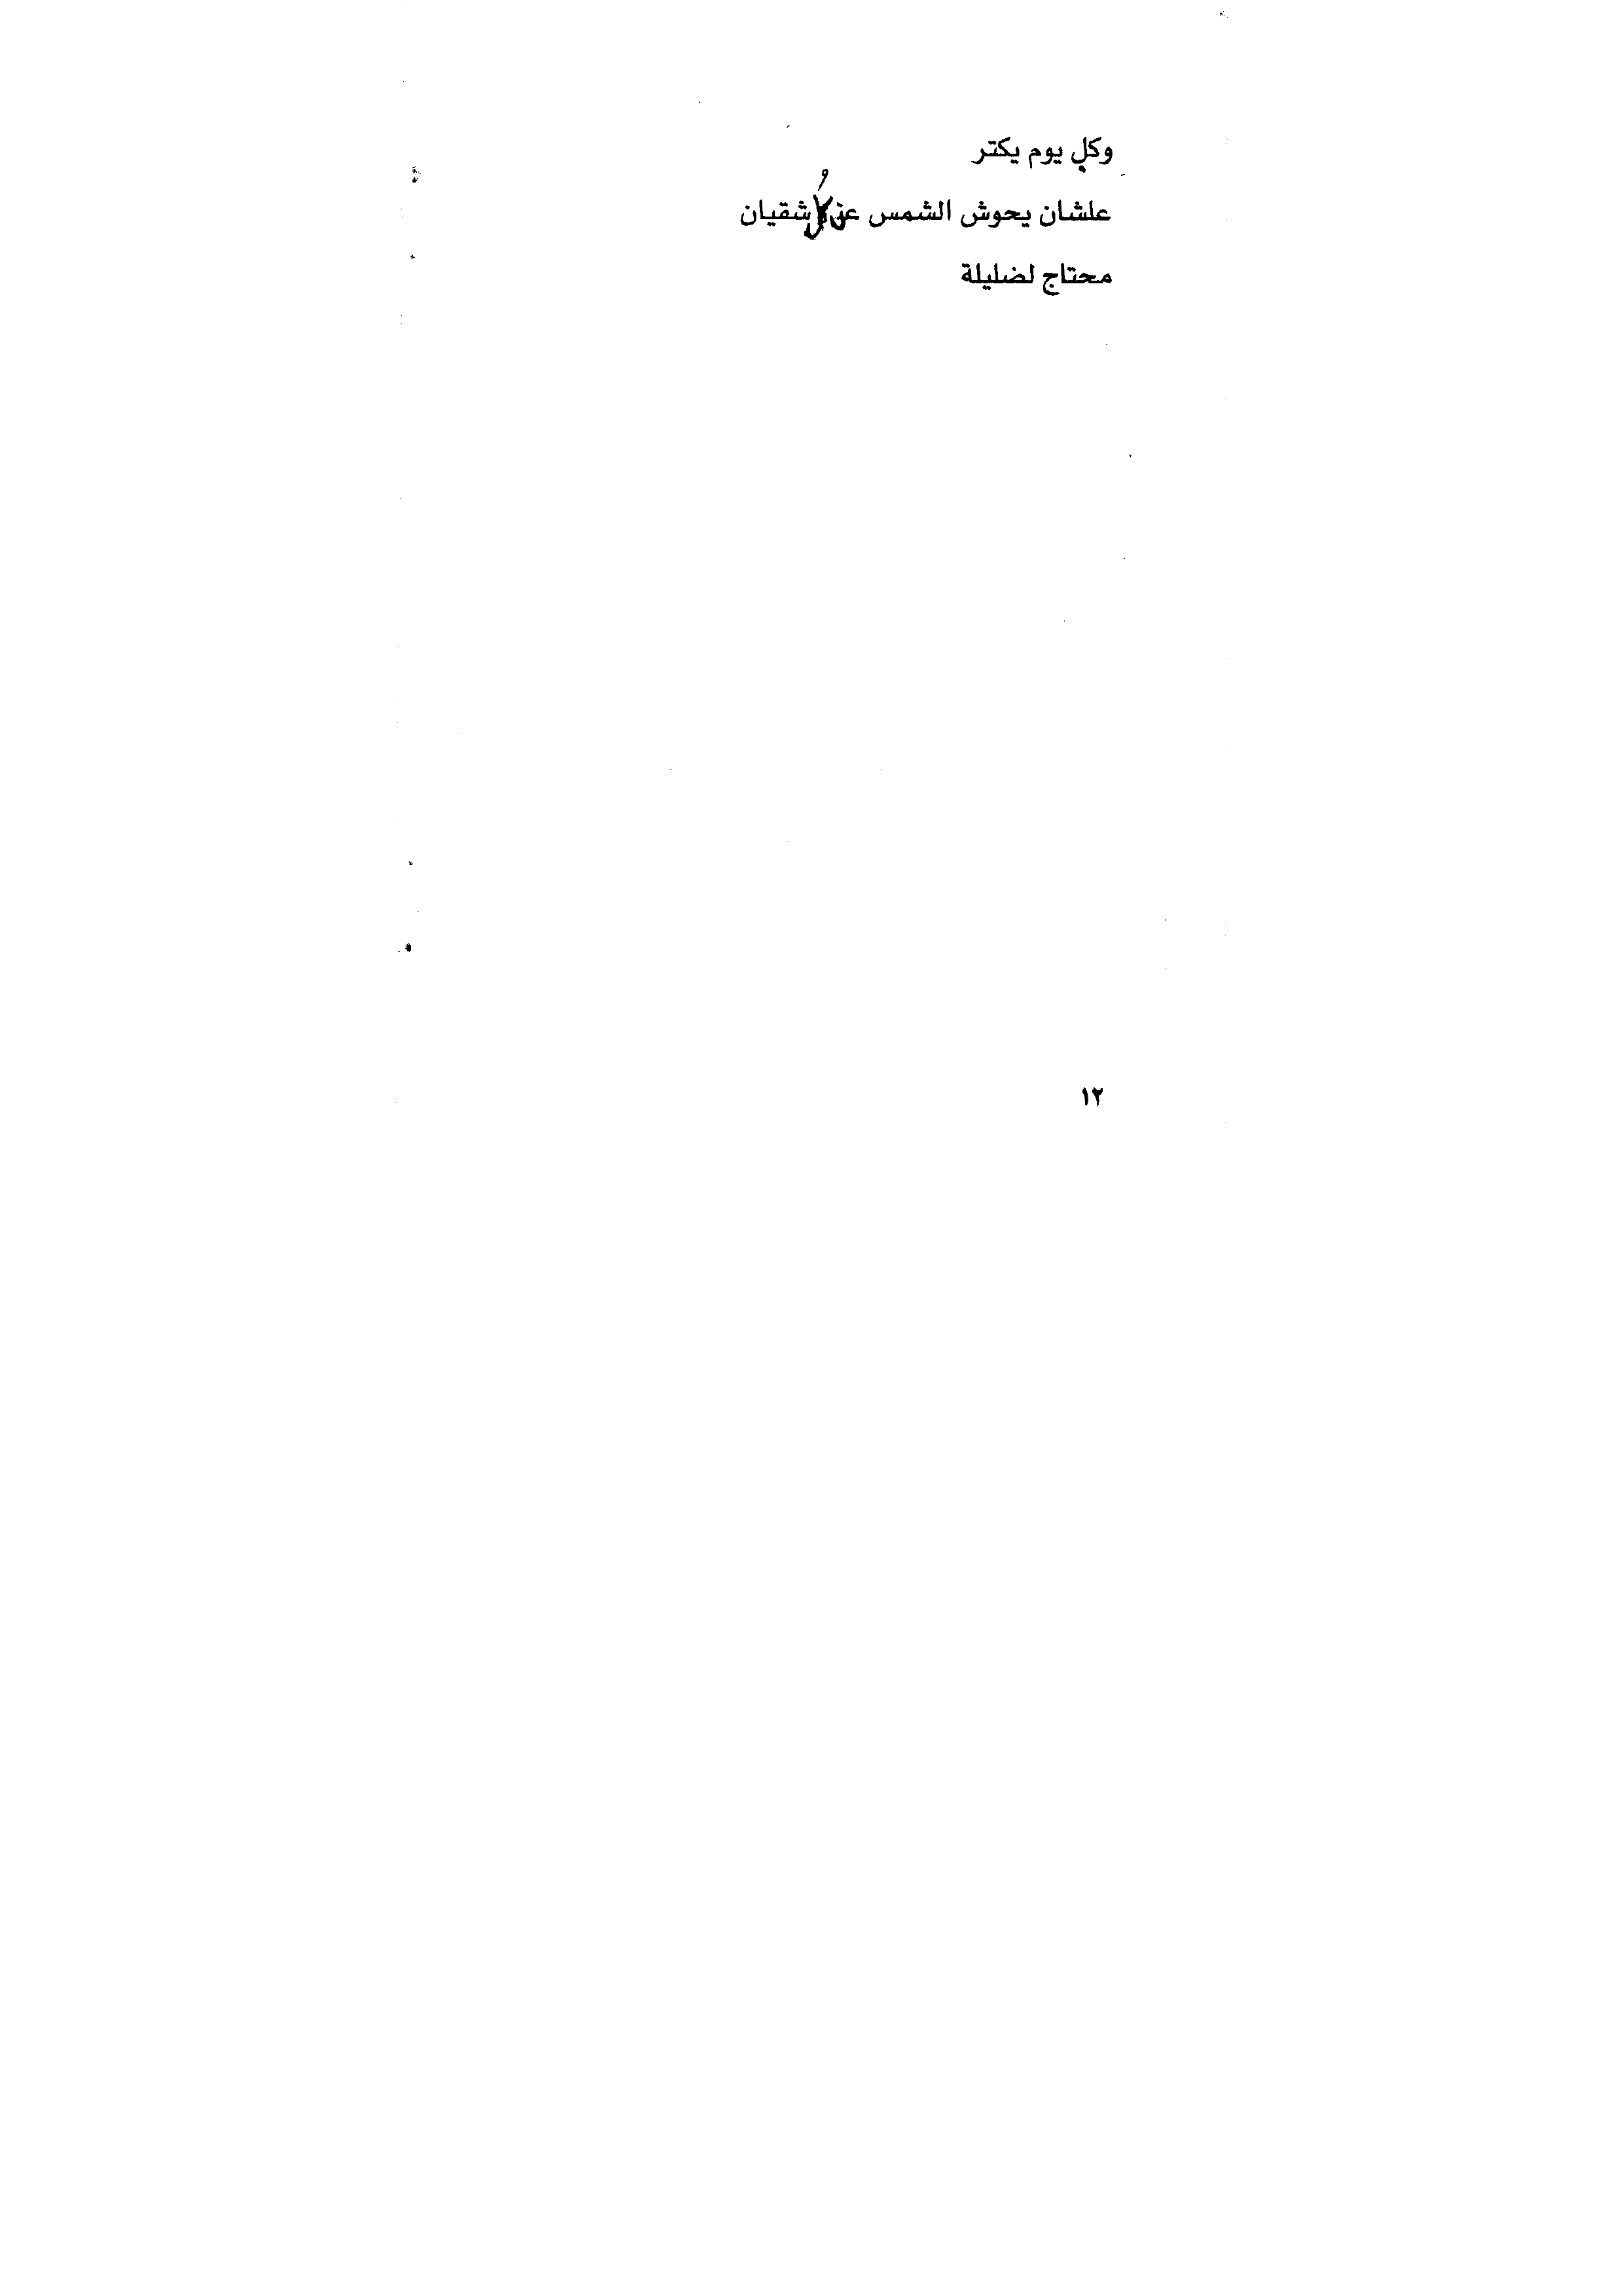 وكل يوم يكتر
علشان يحوش الشمس عن كل شقيان
محتاج لضليلة
١٢